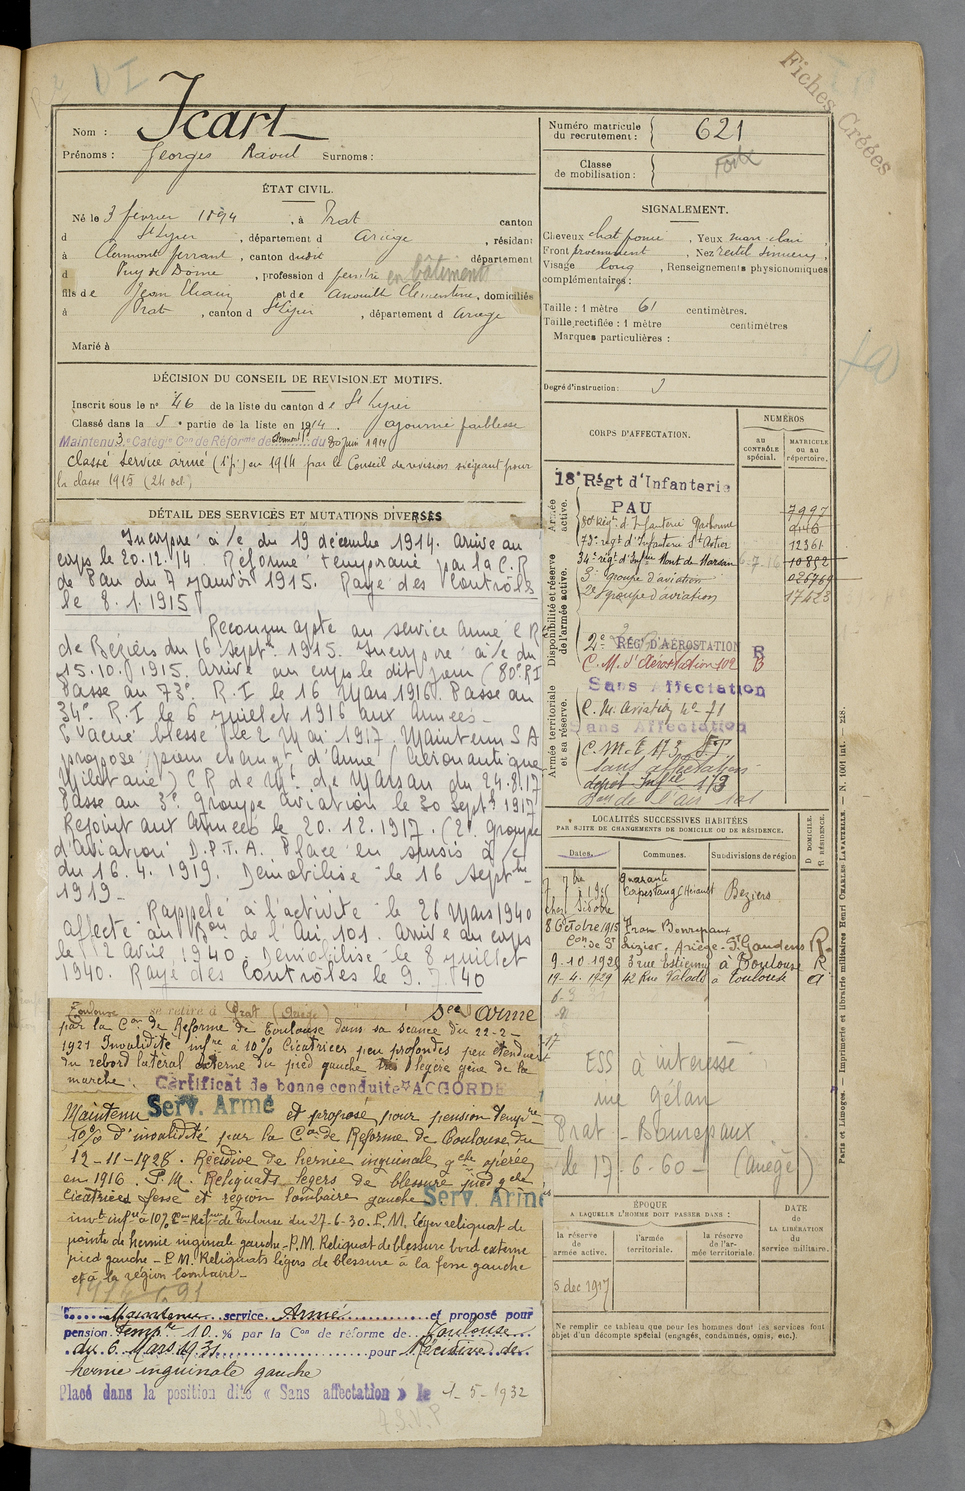 Fiches Créées
Nom : Icart
Prénoms : Georges Raoul Surnoms :
Numéro matricule
du recrutement : 621
Classe
de mobilisation :
ÉTAT CIVIL.
Né le 3 février 1894 , à Prat canton
d St Lizier , département d Ariège , résidant
à Clermont ferrant , canton dudit département
d Puy de Dome , profession d peintre en bâtiment
fils de Jean et de Anouilh Clémentine, domiciliés
à Prat , canton d St Lizier , département d Ariège
Marié à
SIGNALEMENT.
Cheveux chat foncé , Yeux marr. clair
Front proéminent , Nez rectil sinueux
Visage long , Renseignements physionomiques
complémentaires :
Taille : 1 mètre 61 centimètres.
Taille rectifiée : 1 mètre centimètres
Marques particulières :
Degré d'instruction : 3
DÉCISION DU CONSEIL DE REVISION ET MOTIFS.
Inscrit sous le n° 46 de la liste du canton de St Lizier
Classé dans la 5e partie de la liste en 1914. ajourné faiblesse
Maintenu 3e Catégie Con de Réforme de Clermont du 30 Juin 1914
Classé Service armé (1e p.) en 1914 par le Conseil de revision siégeant pour
la classe 1915 (24 oct)
DÉTAIL DES SERVICES ET MUTATIONS DIVERSES
Incorporé à/c du 19 décembre 1914. Arrivé au
corps le 20.12.14 Réformé temporaire par la C.R
de Pau du 7 janvier 1915. Rayé des Contrôles
le 8.1.1915
Reconnu apte au service Armé C R
de Béziers du 16 Septre 1915. Incorporé à/c du
15.10.1915. Arrivé au corps le dit jour (80e RI
Passé au 73e R.I le 16 Mars 1916. Passé au
34e R.I le 6 juillet 1916 aux Armées -
Evacué blessé le 2 Mai 1917. Maintenu S A
proposé pour changt d'Arme (Aéronautique
Militaire) CR de Mt de Marsan du 24.8.17
Passé au 3e groupe aviation le 30 Septe 1917
Rejoint aux Armées le 20.12.1917. (2e groupe
d'aviation D.P.T.A. Placé en sursis à/c
du 16.4.1919. Démobilisé le 16 Septre
1919 -
Rappelé à l'activité le 26 Mars 1940
affecté au Bon de l'Air 101. Arrivé au corps
le 12 Avril 1940. Démobilisé le 8 juillet
1940. Rayé des Contrôles le 9.7.40
Toulouse se retire à Prat (Ariège) Sce Armé
par la Con de Réforme de Toulouse dans sa séance du 22-2-
1921 Invalidité infre à 10% Cicatrices peu profondes peu étendues
du rebord latéral externe du pied gauche très légère gêne de la
marche. Certificat de bonne conduite ACCORDÉ
Maintenu Serv. Armé et proposé pour pension tempre
10% d'invalidité par la Con de Réforme de Toulouse du
12-11-1928. Récidive de hernie inguinale gche opérée
en 1916. P.M. Reliquats légers de blessure pied gche
Cicatrices fesse et région lombaire gauche Serv. Armé
invté infre à 10% Con Ref. de Toulouse du 27-6-30. P.M. léger reliquat de
pointe de hernie inguinale gauche - P.M. Reliquat de blessure bord externe
pied gauche - P.M. Reliquats légers de blessure à la fesse gauche
et à la région lombaire -
Maintenu service Armé et proposé pour
pension Tempre 10 % par la Con de réforme de Toulouse
du 6 Mars 1931 pour Récidive de
hernie inguinale gauche
Placé dans la position dite « Sans affectation » le 1-5-1932
CORPS D'AFFECTATION.
NUMÉROS
au
CONTRÔLE
spécial.
MATRICULE
ou au
répertoire.
Armée
active.
18e Régt d'Infanterie
PAU 7997
80e Régt d'Infanterie Narbonne
73e régt d'Infanterie St Astier 12361
34e régt d'Infie Mont de Marsan 10852
3e groupe d'aviation
2e groupe d'aviation 17423
Disponibilité et réserve
de l'armée active.
2e RÉGt D'AÉROSTATION R
C.M. d'Aérostation 102 B
Sans Affectation
Armée territoriale
et sa réserve.
C.M. Aviation No 71
Sans Affectation
C.M.I 173
Sans affectation
dépôt Infie 173
Bon de l'air 101
LOCALITÉS SUCCESSIVES HABITÉES
PAR SUITE DE CHANGEMENTS DE DOMICILE OU DE RÉSIDENCE.
Dates. Communes. Subdivisions de région
D. DOMICILE.
R. RÉSIDENCE.
Capestang (Hérault Béziers
8 Octobre 1915 Prat Bonrepaux
Con de St Lizier. Ariège - St Gaudens R.
9-10-1928 3 rue à Toulouse R
19-4-1929 42 Rue Valade à Toulouse
ESS à intéressé
Prat - Bonrepaux
le 17-6-60 - (Ariège)
ÉPOQUE
A LAQUELLE L'HOMME DOIT PASSER DANS :
DATE
de
LA LIBÉRATION
du
service militaire.
la réserve
de
l'armée active.
l'armée
territoriale.
la réserve
de l'ar-
mée territoriale.
5 dec 1917
Ne remplir ce tableau que pour les hommes dont les services font
l'objet d'un décompte spécial (engagés, condamnés, omis, etc.).
Paris et Limoges. — Imprimerie et librairie militaires Henri CHARLES-LAVAUZELLE. — N. 1001 int.